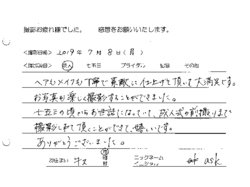 撮影お疲れ様でした。 感想をお願いいたします。
<撮影日時> 2019年 7月 8日(月)
成人 七五三 ブライダル その他
ヘアもメイクも丁寧で素敵に仕上げて頂いて大満足です。
お写真も楽しく撮影することができました。
七五三の頃からお世話になっていて、成人式の前撮りまで
撮影に来て頂くことができて嬉しいです。
ありがとうございました。
お住まい
ニックネーム
ask